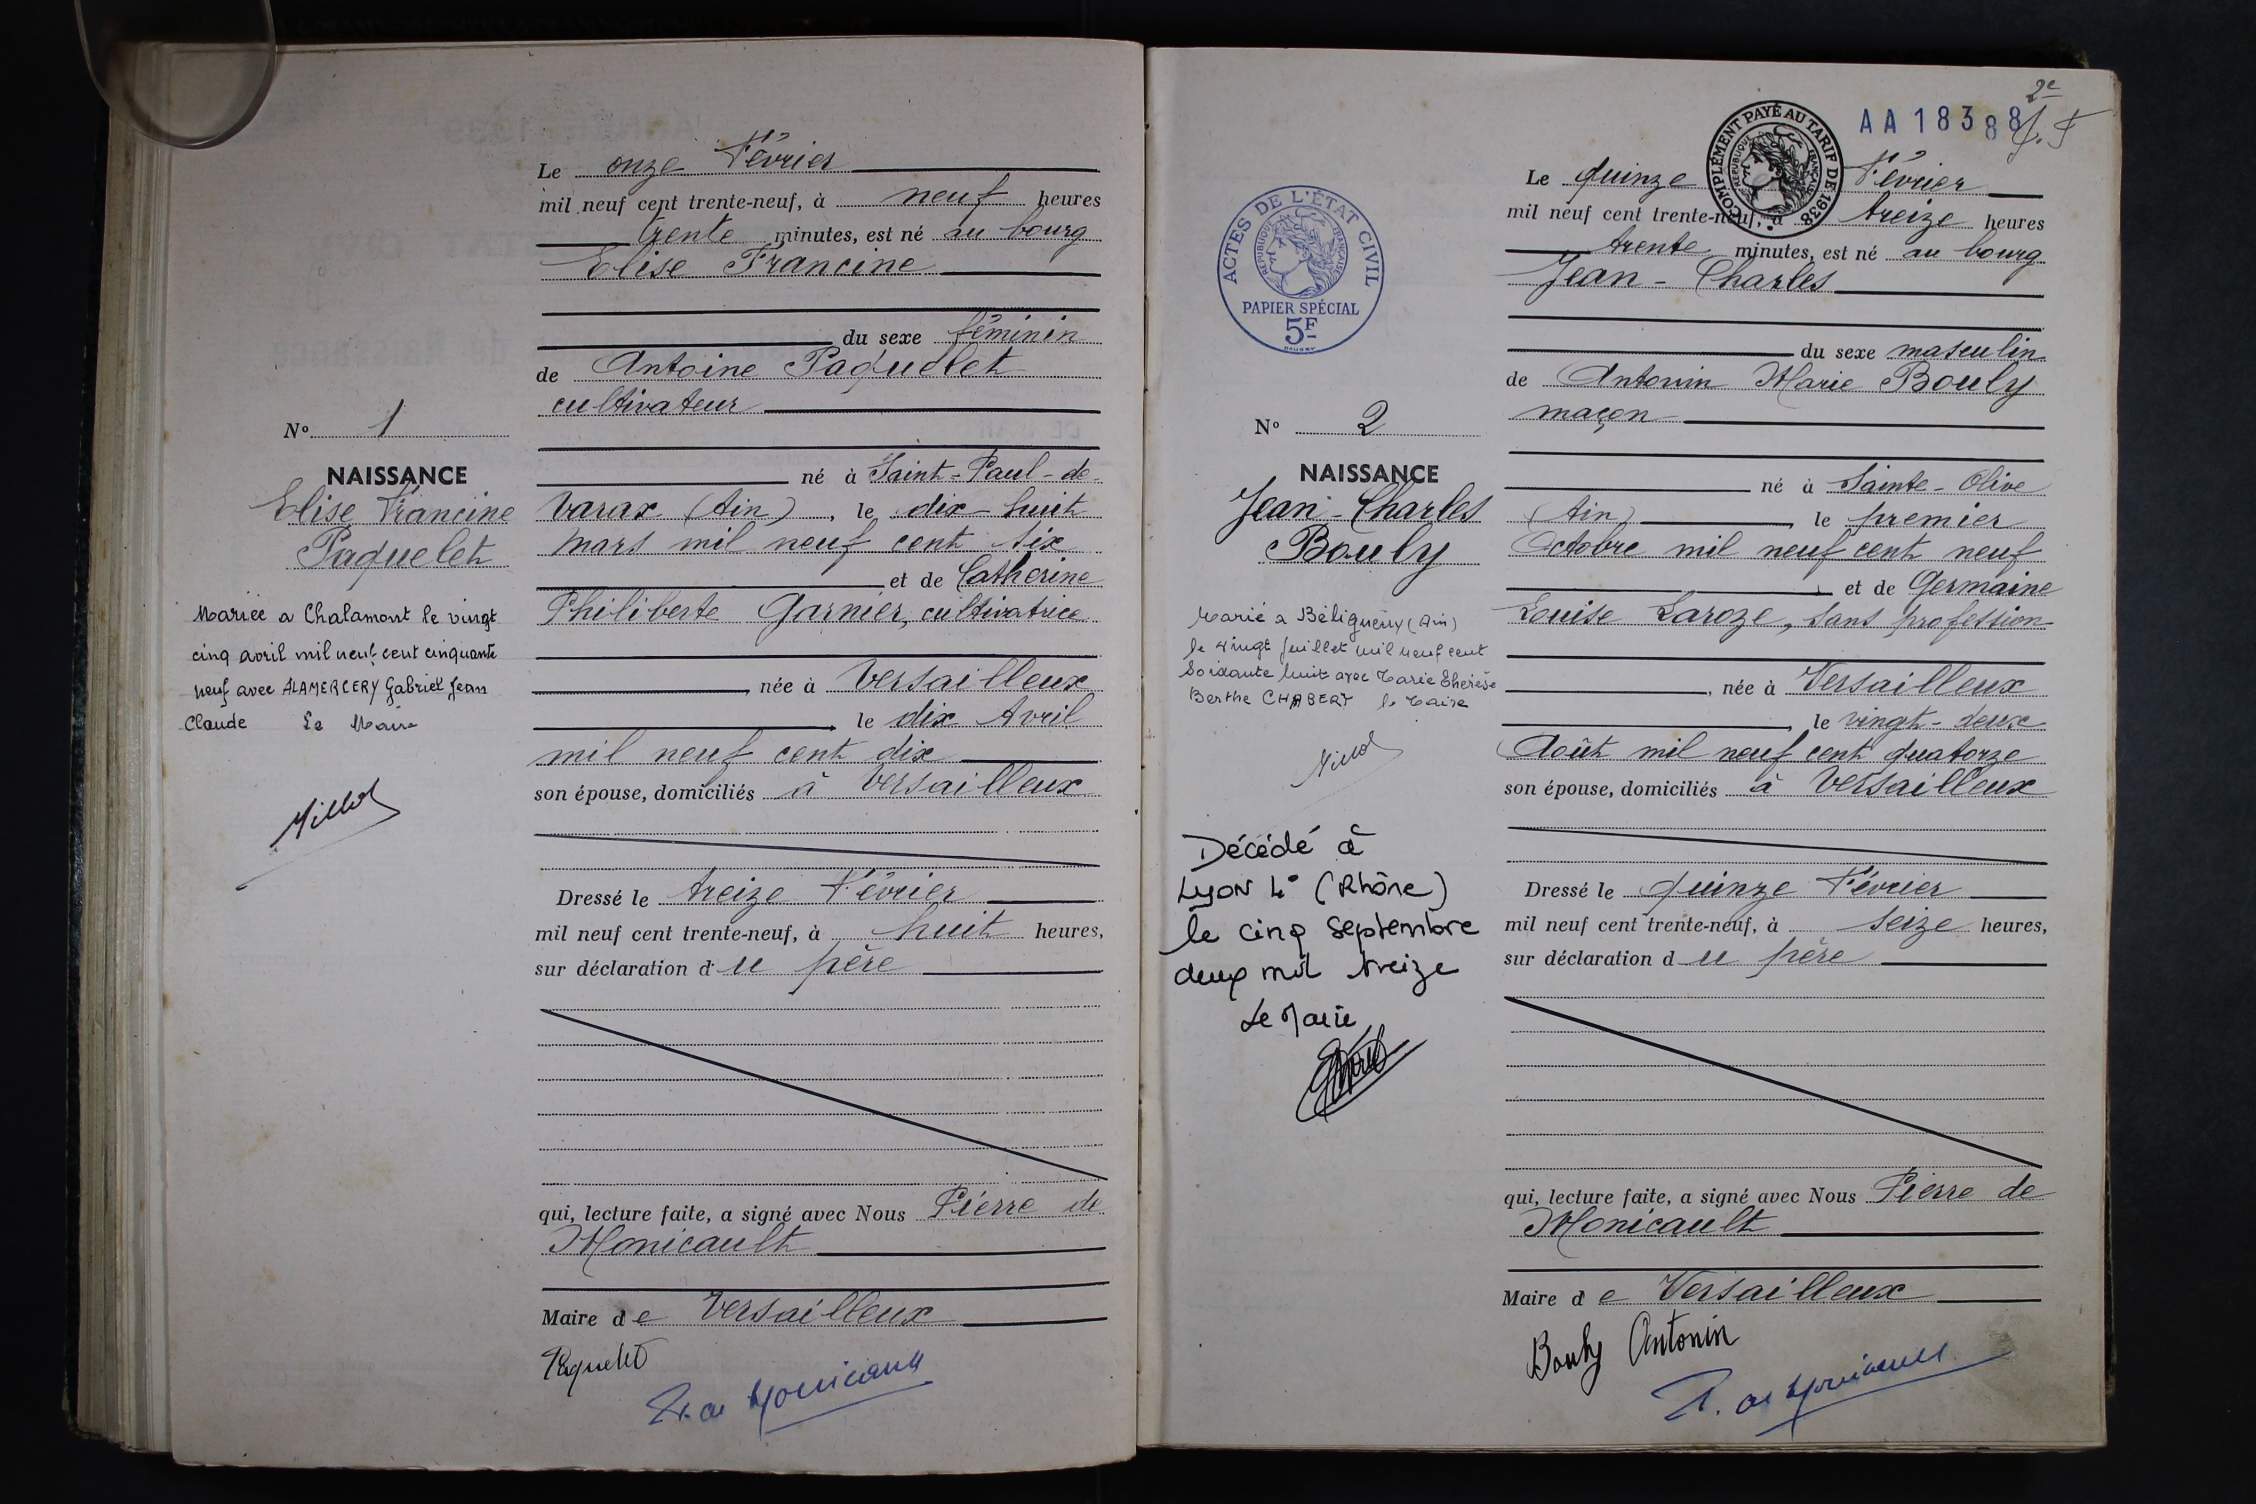 Le onze Février
mil neuf cent trente-neuf, à neuf heures
trente minutes, est né au bourg
Elise Francine
du sexe féminin
de Antoine Paquelet
cultivateur
né à Saint-Paul-de-
Varax (Ain), le dix-huit
Mars mil neuf cent six
et de Catherine
Philiberte Garnier, cultivatrice
, née à Versailleux
, le dix Avril
mil neuf cent dix
son épouse, domiciliés à Versailleux
Dressé le treize Février
mil neuf cent trente-neuf, à huit heures,
sur déclaration du père
qui, lecture faite, a signé avec Nous Pierre de
Monicault
Maire de Versailleux
Paquelet
P. de Monicault
No 1
NAISSANCE
Elise Francine
Paquelet
Mariée a Chalamont le vingt
cinq avril mil neuf cent cinquante
neuf avec ALAMERCERY Gabriel Jean
Claude Le Maire
2e
AA 18388
COMPLÉMENT PAYÉ AU TARIF DE 1938
RÉPUBLIQUE FRANÇAISE
ACTES DE L'ÉTAT CIVIL
RÉPUBLIQUE FRANÇAISE
PAPIER SPÉCIAL
5F
Le quinze Février
mil neuf cent trente-neuf, à treize heures
trente minutes, est né au bourg
Jean-Charles
du sexe masculin
de Antonin Marie Bouly
maçon
né à Sainte-Olive
(Ain), le premier
Octobre mil neuf cent neuf
et de Germaine
Louise Laroze, sans profession
, née à Versailleux
, le vingt-deux
Août mil neuf cent quatorze
son épouse, domiciliés à Versailleux
Dressé le quinze Février
mil neuf cent trente-neuf, à seize heures,
sur déclaration du père
qui, lecture faite, a signé avec Nous Pierre de
Monicault
Maire de Versailleux
Bouly Antonin
P. de Monicault
No 2
NAISSANCE
Jean-Charles
Bouly
Marié a Béligneux (Ain)
le vingt juillet mil neuf cent
Soixante huit avec Marie Thérèse
Berthe CHABERT le Maire
Décédé à
Lyon 4° (Rhône)
le cinq septembre
deux mil treize
Le Maire